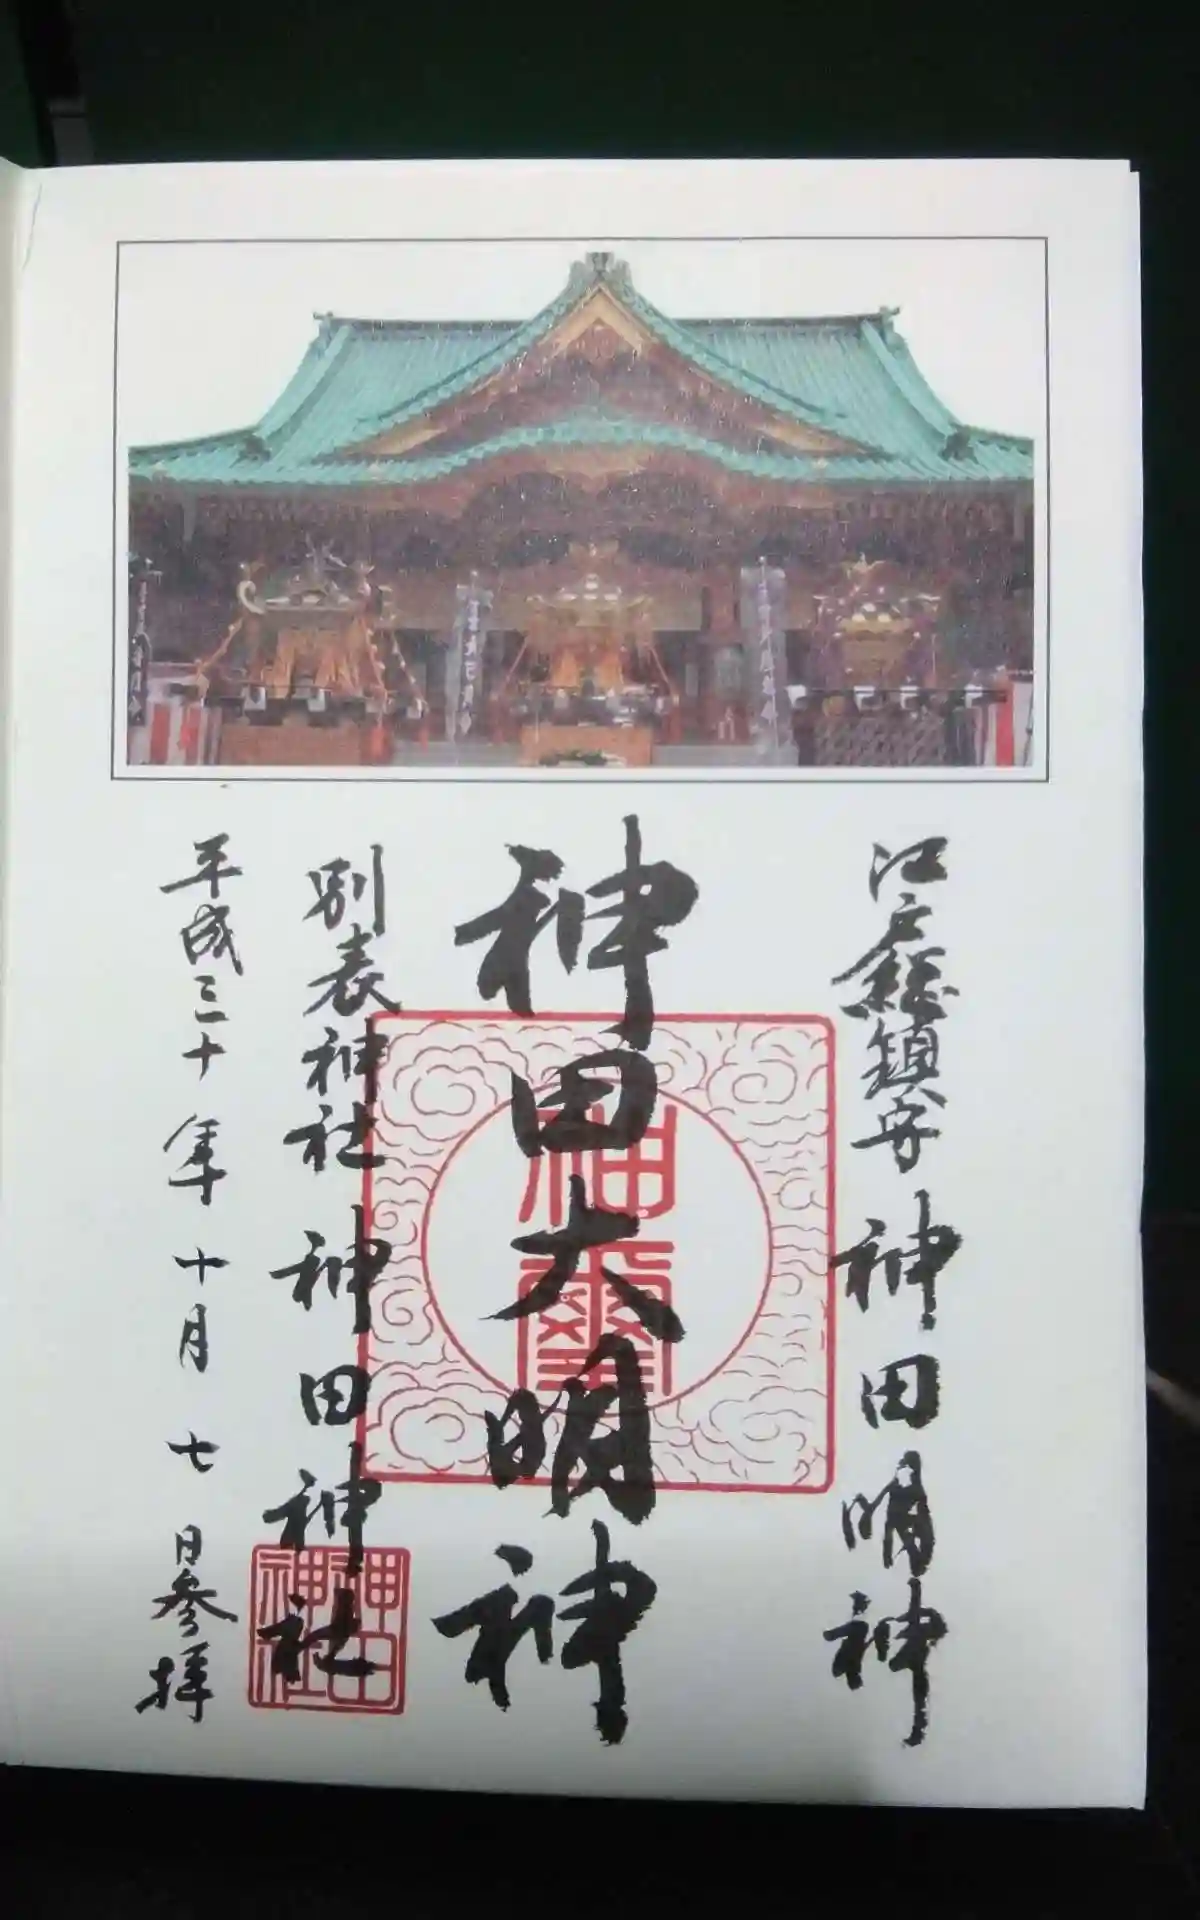 江戸総鎮守 神田明神
神田大明神
神璽
別表神社 神田神社
神田神社
平成三十年十月七日参拝